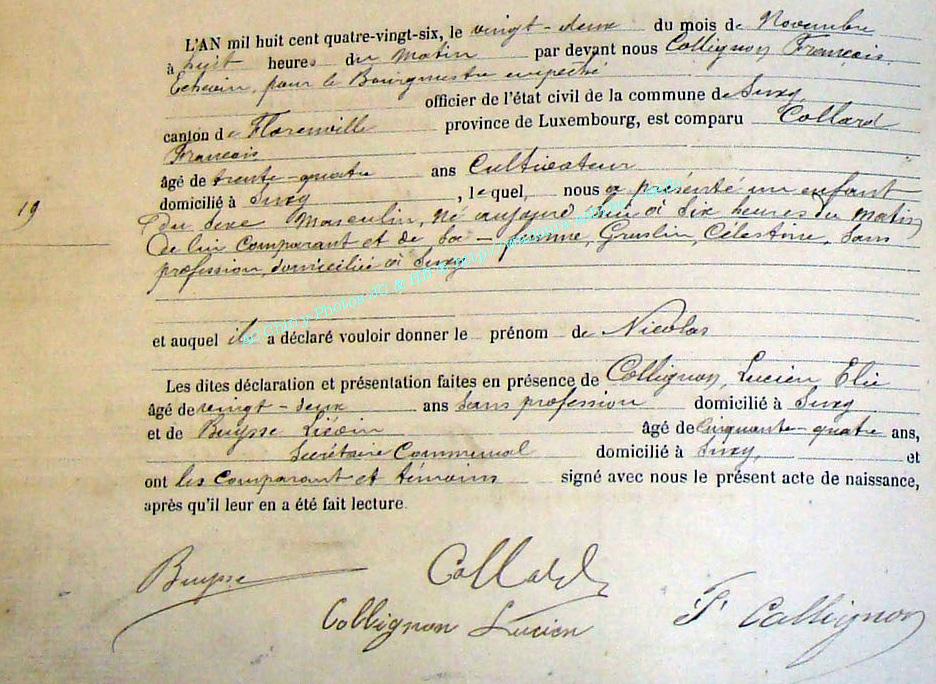 L'AN mil huit cent quatre-vingt-six, le vingt-deux du mois de Novembre
à huit heures du Matin par devant nous Collignon François,
Echevin, pour le Bourgmestre empêché
officier de l'état civil de la commune de Suxy,
canton de Florenville province de Luxembourg, est comparu Collard
François
âgé de trente-quatre ans Cultivateur
domicilié à Suxy, lequel, nous a présenté un enfant
19
du sexe Masculin, né aujourd'hui à six heures du matin
de lui comparant et de sa femme, Gruslin, Célestine, sans
profession, domiciliée à Suxy
et auquel il a déclaré vouloir donner le prénom de Nicolas
Les dites déclaration et présentation faites en présence de Collignon, Lucien Elie
âgé de vingt-deux ans sans profession domicilié à Suxy
et de Buysse âgé de cinquante-quatre ans,
Secrétaire Communal domicilié à Suxy, et
ont les comparant et témoins signé avec nous le présent acte de naissance,
après qu'il leur en a été fait lecture.
Buysse
Collard
Collignon Lucien
F Collignon